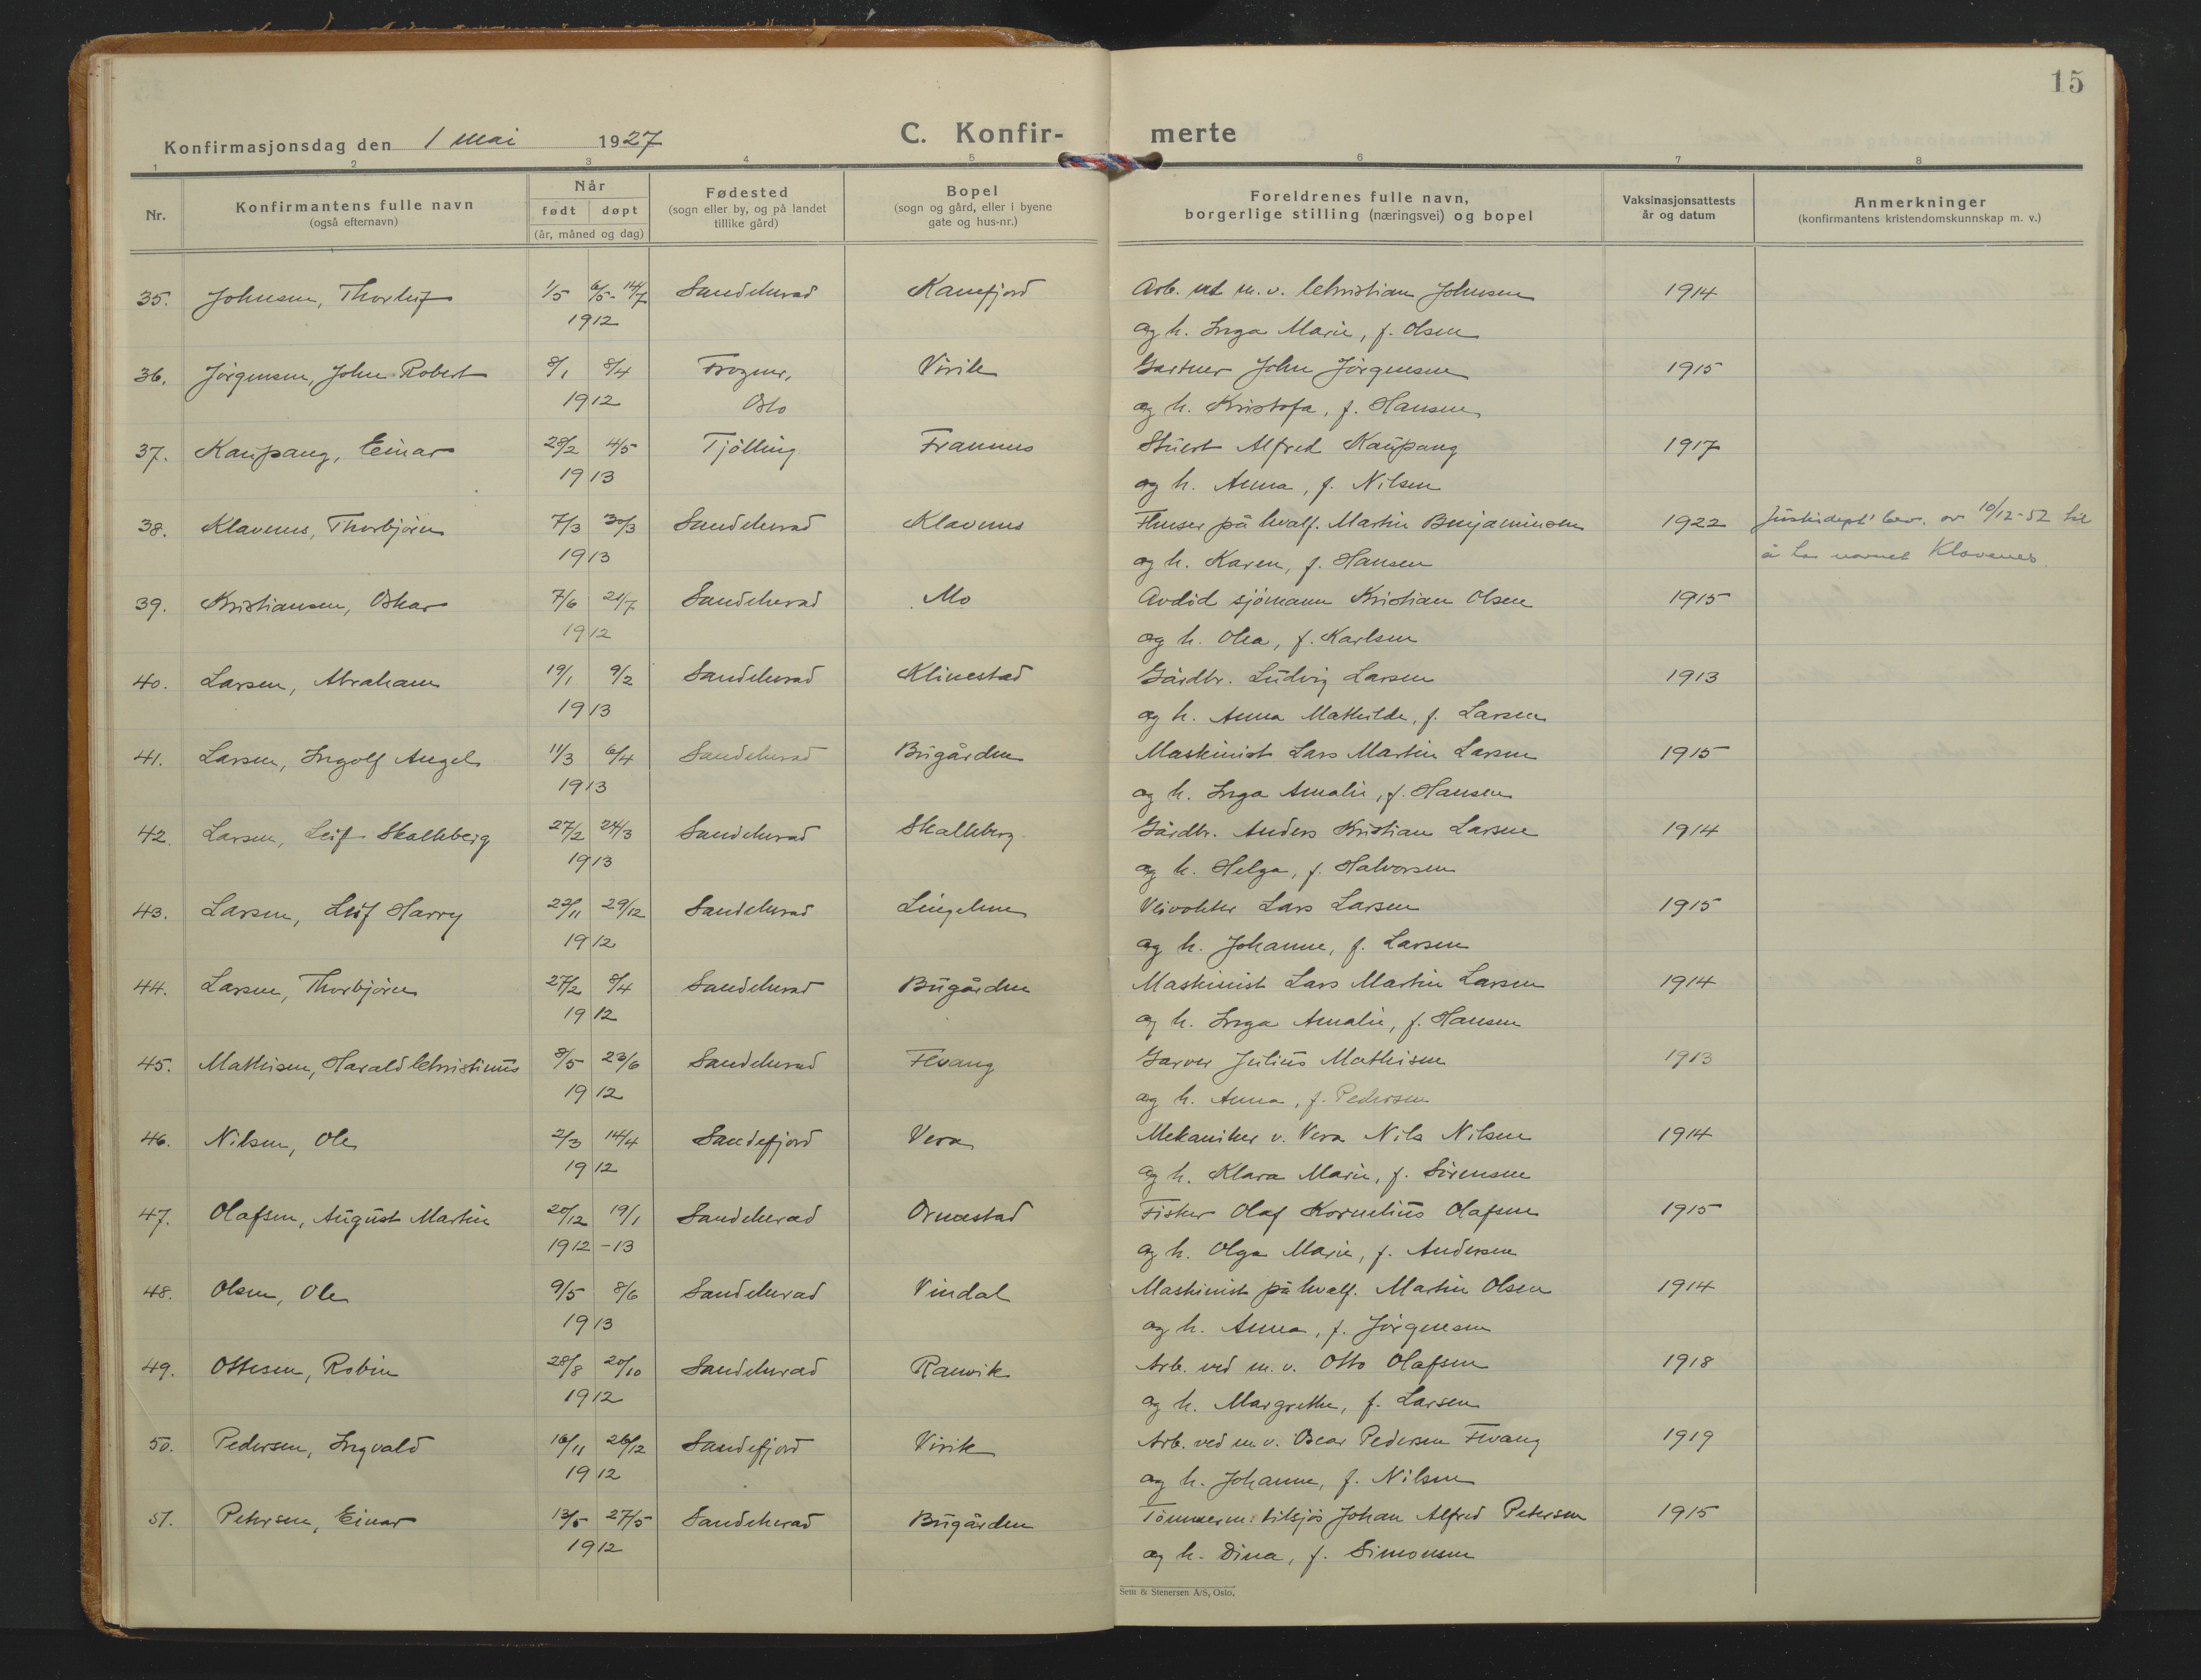 15
Konfirmasjonsdag den 1 mai 1927
C. Konfir- merte
1 2 3 4 5 6 7 8
Nr.
Konfirmantens fulle navn
(også efternavn)
Når
født døpt
(år, måned og dag)
Fødested
(sogn eller by, og på landet
tillike gård)
Bopel
(sogn og gård, eller i byene
gate og hus-nr.)
Foreldrenes fulle navn,
borgerlige stilling (næringsvei) og bopel
Vaksinasjonsattests
år og datum
Anmerkninger
(konfirmantens kristendomskunnskap m. v.)
35. Johnsen, Thorleif 1/5 6/5-14/7 Sandeherad Kamfjord Arb. ved m.v. Christian Johnsen 1914
1912 og h. Inga Marie, f. Olsen
36. Jörgensen, John Robert 8/1 8/4 Frogner, Virik Gartner John Jörgensen 1915
1912 Oslo og h. Kristofa, f. Hansen
37. Kaupang, Einar 28/2 4/5 Tjölling Framnes Stuert Alfred Kaupang 1917
1913 og h. Anna, f. Nilsen
38. Klavenes, Thorbjörn 7/3 30/3 Sandeherad Klavenes Flenser på hvalf. Martin Benjaminsen 1922 Justisdept' bev. av 10/12-52 til
1913 og h. Karen, f. Hansen å ta navnet Klavenes
39. Kristiansen, Oskar 7/6 21/7 Sandeherad Mo Avdöd sjömann Kristian Olsen 1915
1912 og h. Olea, f. Karlsen
40. Larsen, Abraham 19/1 9/2 Sandeherad Klinestad Gårdbr. Ludvig Larsen 1913
1913 og h. Anna Mathilde, f. Larsen
41. Larsen, Ingolf Angel 11/3 6/4 Sandeherad Bugården Maskinist Lars Martin Larsen 1915
1913 og h. Inga Amalie, f. Hansen
42. Larsen, Leif Skalleberg 27/2 24/3 Sandeherad Skalleberg Gårdbr. Anders Kristian Larsen 1914
1913 og h. Helga, f. Halvorsen
43. Larsen, Leif Harry 22/11 29/12 Sandeherad Lingelem Veivokter Lars Larsen 1915
1912 og h. Johanne, f. Larsen
44. Larsen, Thorbjörn 27/2 8/4 Sandeherad Bugården Maskinist Lars Martin Larsen 1914
1912 og h. Inga Amalie, f. Hansen
45. Mathisen, Harald Christinus 8/5 23/6 Sandeherad Fevang Garver Julius Mathisen 1913
1912 og h. Anna, f. Pedersen
46. Nilsen, Ole 2/3 14/4 Sandefjord Vera Mekaniker v. Vera Nils Nilsen 1914
1912 og h. Klara Marie, f. Sörensen
47. Olafsen, August Martin 20/12 19/1 Sandeherad Ormestad Fisker Olaf Kornelius Olafsen 1915
1912-13 og h. Olga Marie, f. Andersen
48. Olsen, Ole 9/5 8/6 Sandeherad Vindal Maskinist på hvalf. Martin Olsen 1914
1913 og h. Anna, f. Jörgensen
49. Ottesen, Robin 28/8 20/10 Sandeherad Ranvik Arb. ved m.v. Otto Olafsen 1918
1912 og h. Margrethe, f. Larsen
50. Pedersen, Ingvald 16/11 26/12 Sandefjord Virik Arb. ved m.v. Oscar Pedersen Fevang 1919
1912 og h. Johanne, f. Nilsen
51. Petersen, Einar 13/5 27/5 Sandeherad Bugården Tömmerm. tilsjös Johan Alfred Petersen 1915
1912 og h. Dina, f. Simonsen
Sem & Stenersen A/S, Oslo.